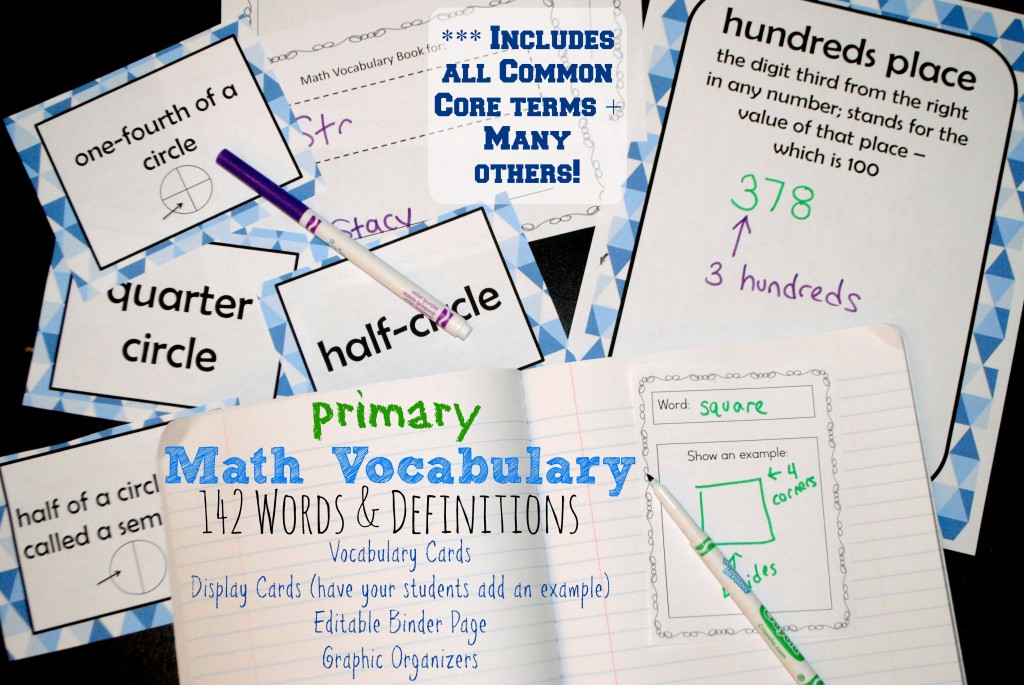 one-fourth of a
circle
Math Vocabulary Book for:
Str
Stacy
*** Includes
all Common
Core terms +
Many
others!
hundreds place
the digit third from the right
in any number; stands for the
value of that place –
which is 100
378
3 hundreds
quarter
circle
half-circle
half of a circl
called a sem
primary
Math Vocabulary
142 Words & Definitions
Vocabulary Cards
Display Cards (have your students add an example)
Editable Binder Page
Graphic Organizers
Word: square
Show an example:
← 4
corners
ides
Crayola